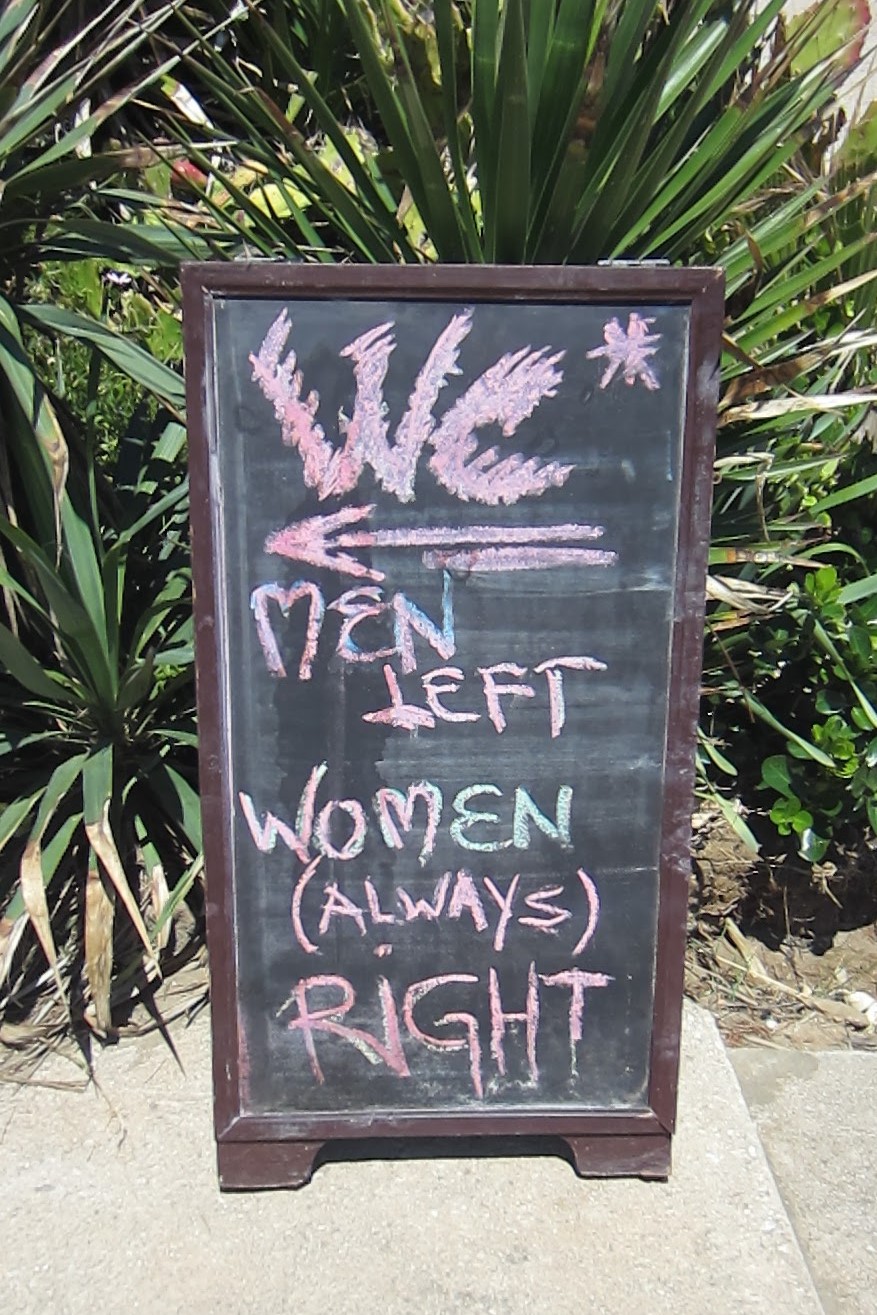 WC*
MEN
LEFT
WOMEN
(ALWAYS)
RiGHT